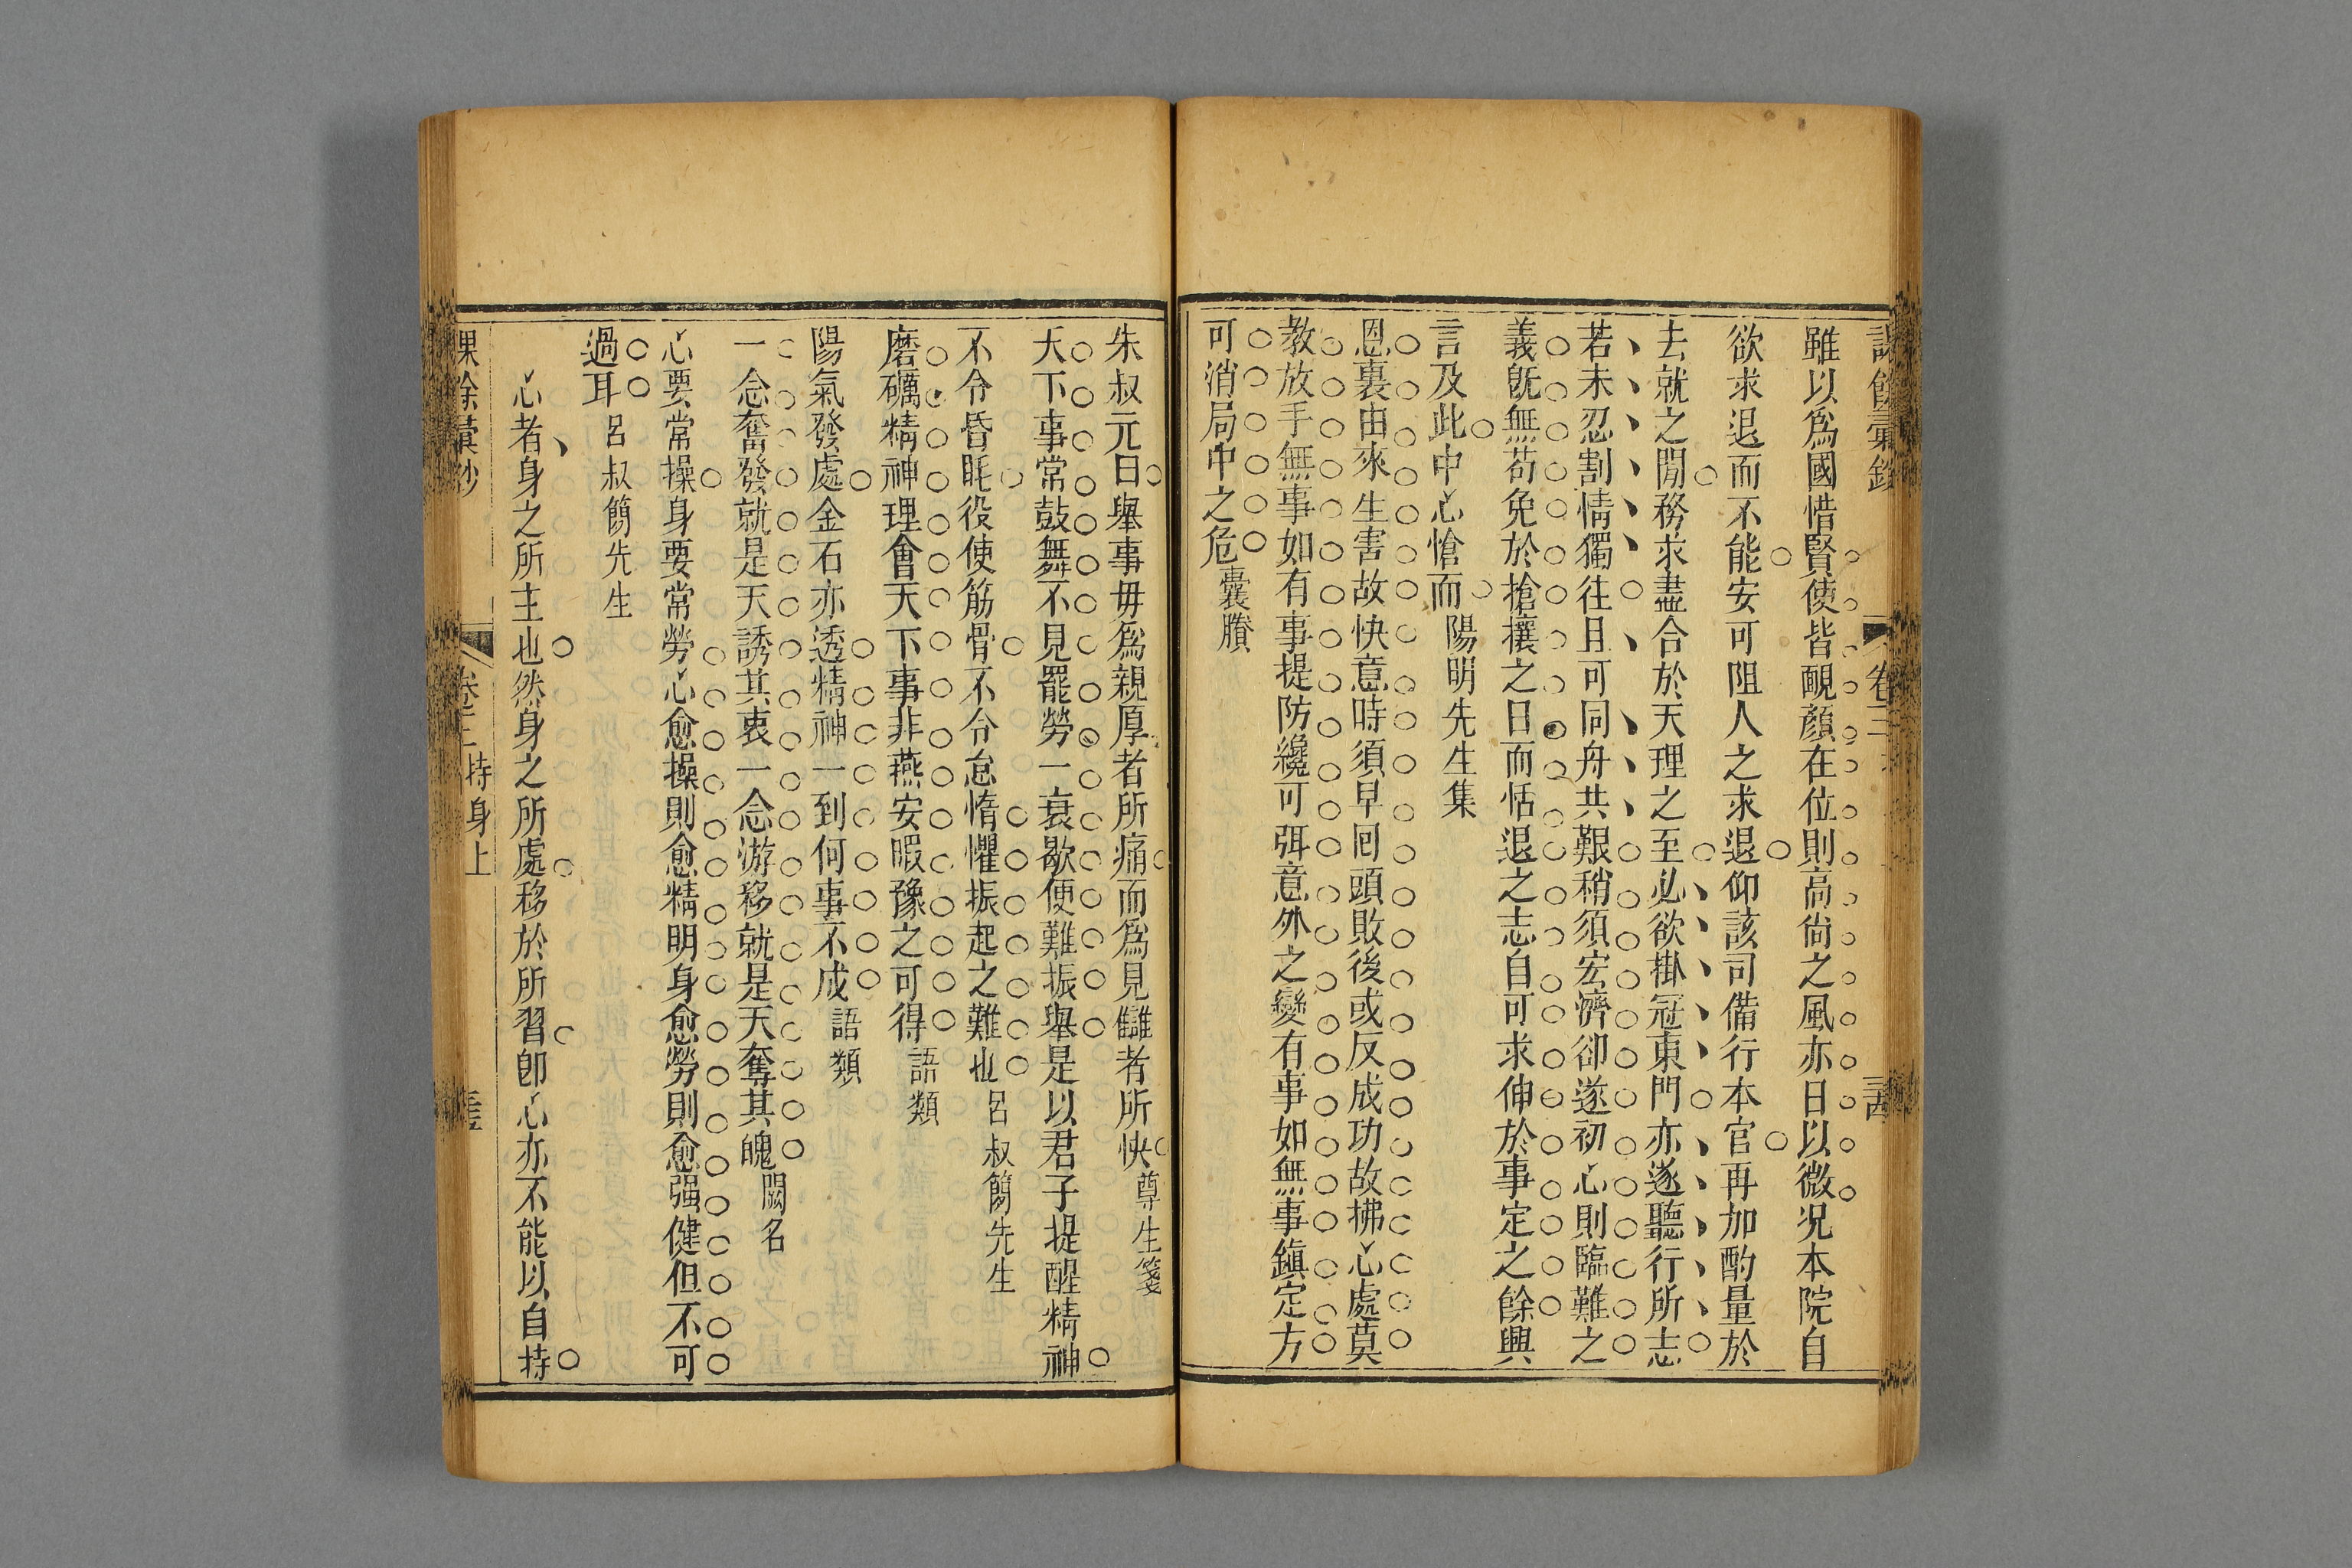 課餘彙鈔 卷三
雖以爲國惜賢使皆靦顏在位則高尙之風亦日以微况本院自
欲求退而不能安可阻人之求退仰該司備行本官再加酌量於
去就之閒務求盡合於天理之至必欲掛冠東門亦遂聽行所志
若未忍割情獨往且可同舟共艱稍須宏濟卻遂初心則臨難之
義旣無苟免於搶攘之日而恬退之志自可求伸於事定之餘興
言及此中心愴而 陽明先生集
恩裏由來生害故快意時須早囘頭敗後或反成功故拂心處莫
教放手無事如有事提防纔可弭意外之變有事如無事鎭定方
可消局中之危 囊賸
朱叔元曰舉事毋爲親厚者所痛而爲見讎者所快 尊生箋
天下事常鼓舞不見罷勞一衰歇便難振舉是以君子提醒精神
不令昏眊役使筋骨不令怠惰懼振起之難也 呂叔簡先生
磨礪精神理會天下事非燕安暇豫之可得 語類
陽氣發處金石亦透精神一到何事不成 語類
一念奮發就是天誘其衷一念游移就是天奪其魄 闕名
心要常操身要常勞心愈操則愈精明身愈勞則愈强健但不可
過耳 呂叔簡先生
心者身之所主也然身之所處移於所習卽心亦不能以自持
課餘彙鈔 卷三 持身上